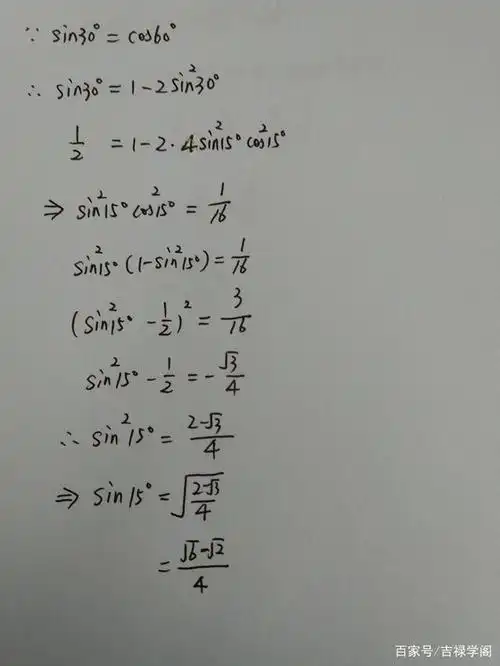 ∵ sin30° = cos60°
∴ sin30° = 1-2sin²30°
1/2 = 1-2·4sin²15°cos²15°
⇒ sin²15°cos²15° = 1/16
sin²15°(1-sin²15°) = 1/16
(sin²15° - 1/2)² = 3/16
sin²15° - 1/2 = -√3/4
∴ sin²15° = (2-√3)/4
⇒ sin15° = √((2-√3)/4)
= (√6-√2)/4
百家号/吉禄学阁